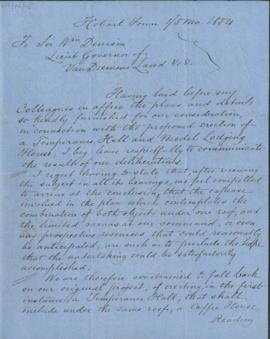 Hobart Town 7/5 Mo. 1854
To Sir Wm Denison
Lieut Governor of
Van Diemens Land &c.
Having laid before my
Colleagues in office the plans and details
so kindly furnished for our consideration,
in connection with the proposed erection of
a Temperance Hall and Model Lodging
House, I beg leave respectfully to communicate
the result of our deliberations.
I regret having to state that, after viewing
the subject in all its bearings, we feel compelled
to arrive at the conclusion, that the expense
involved in the plan which contemplates the
combination of both objects under one roof, and
the limited means at our command, or even
any prospective resources, that could reasonably
be anticipated, are such as to preclude the hope
that the undertaking could be satisfactorily
accomplished;
We are therefore constrained to fall back
on our original project, of erecting, in the first
instance, a Temperance Hall, that shall
include under the same roof, a Coffee House
Reading